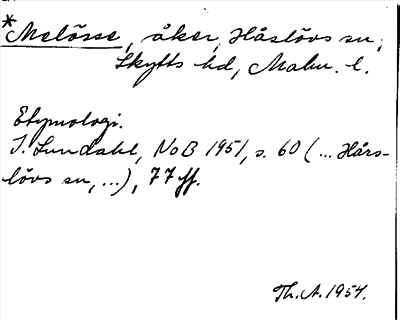 *Melösse, åker, Håslövs sn,
Skytts hd, Malm. l.
Etymologi.
I. Lundahl, NoB 1951, s. 60 (... Hårs-
lövs sn, ...), 77 ff.
Th. A. 1954.